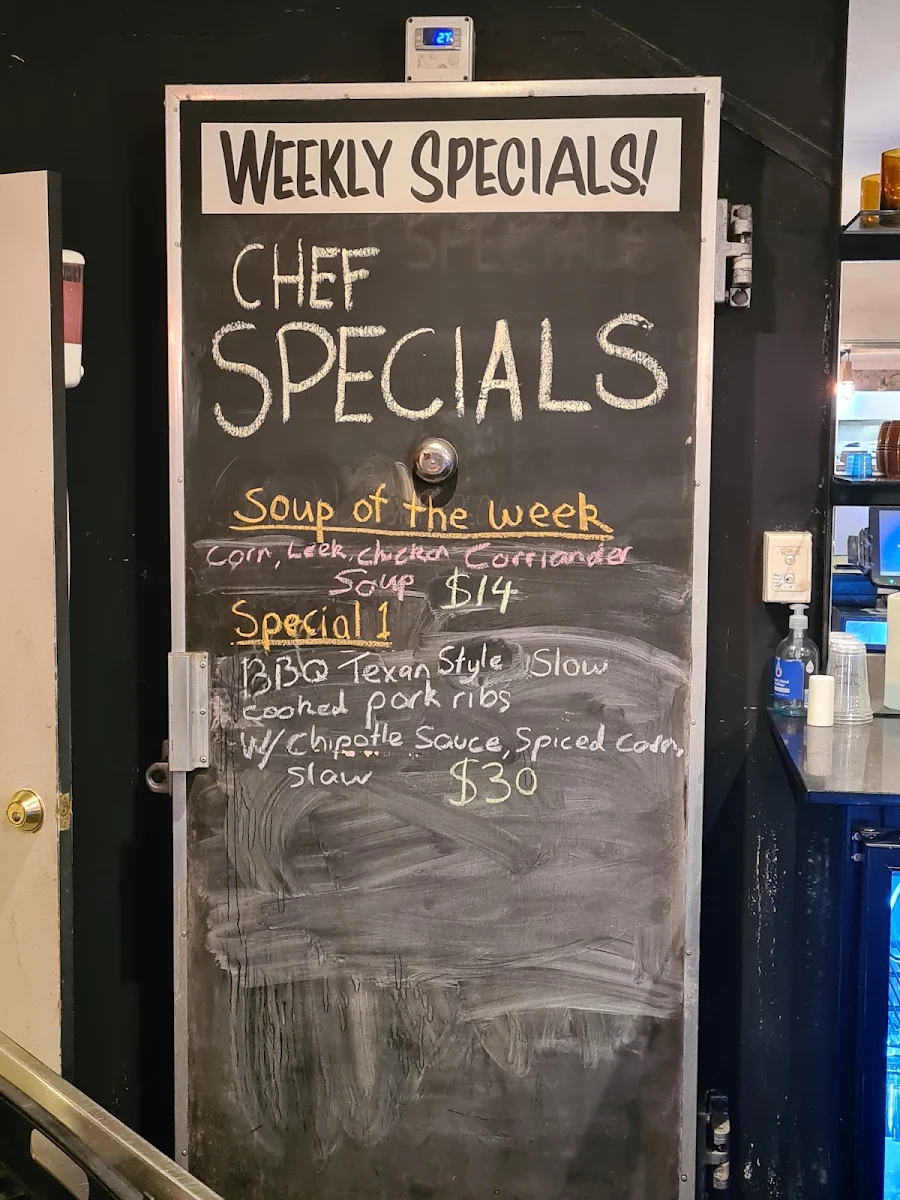 27
WEEKLY SPECIALS!
CHEF
SPECIALS
Soup of the week
Corn, Leek, chicken Corriander
Soup $14
Special 1
BBQ Texan Style Slow
cooked pork ribs
W/ Chipotle Sauce, Spiced Corn,
Slaw $30